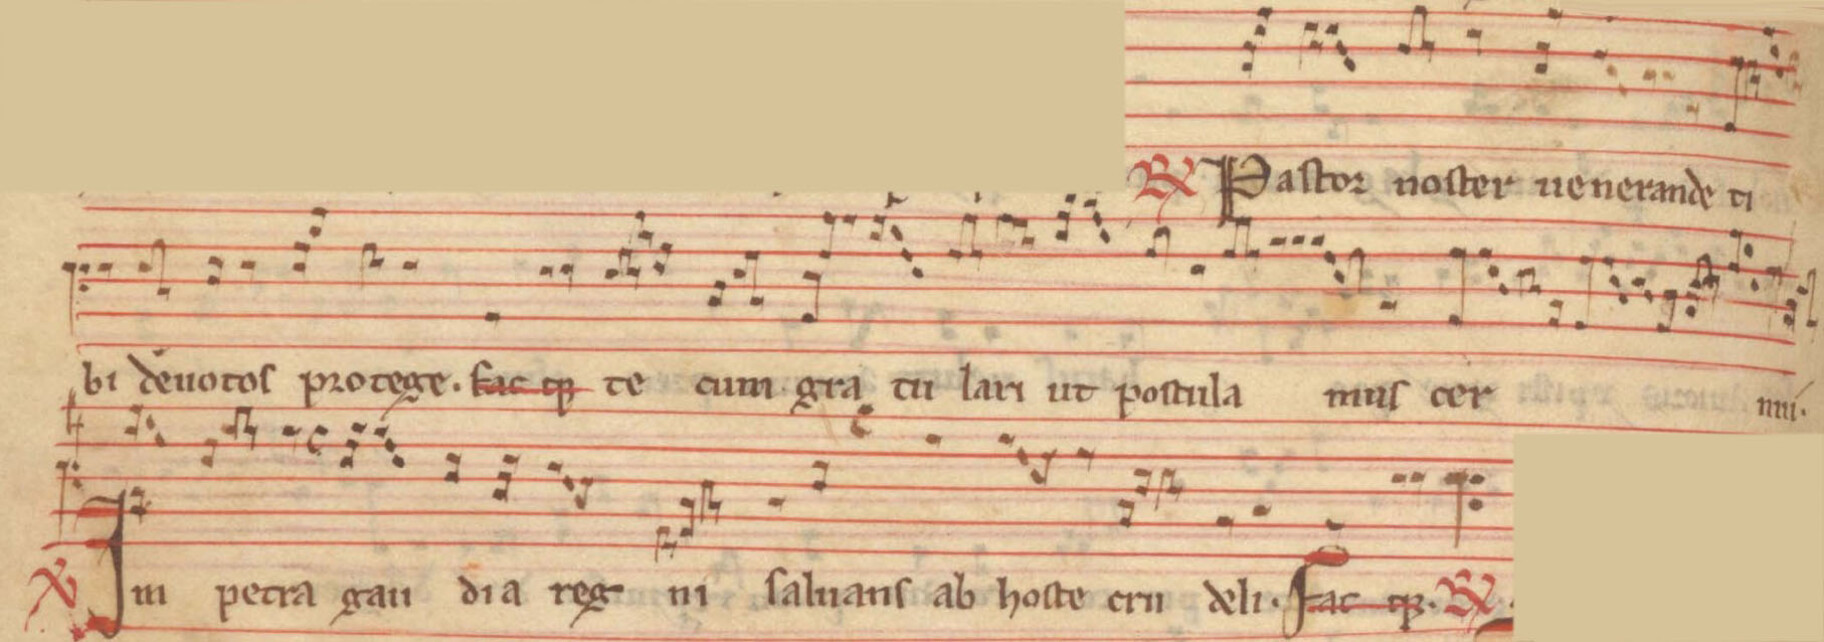 ℟ Pastor noster uenerande ti
bi deuotos protege. fac qͥ te cum gra tu lari ut postula mus cer nui.
℣ In petra gau dia reg ni saluans ab hoste cru deli. fac qͥ. ℟.